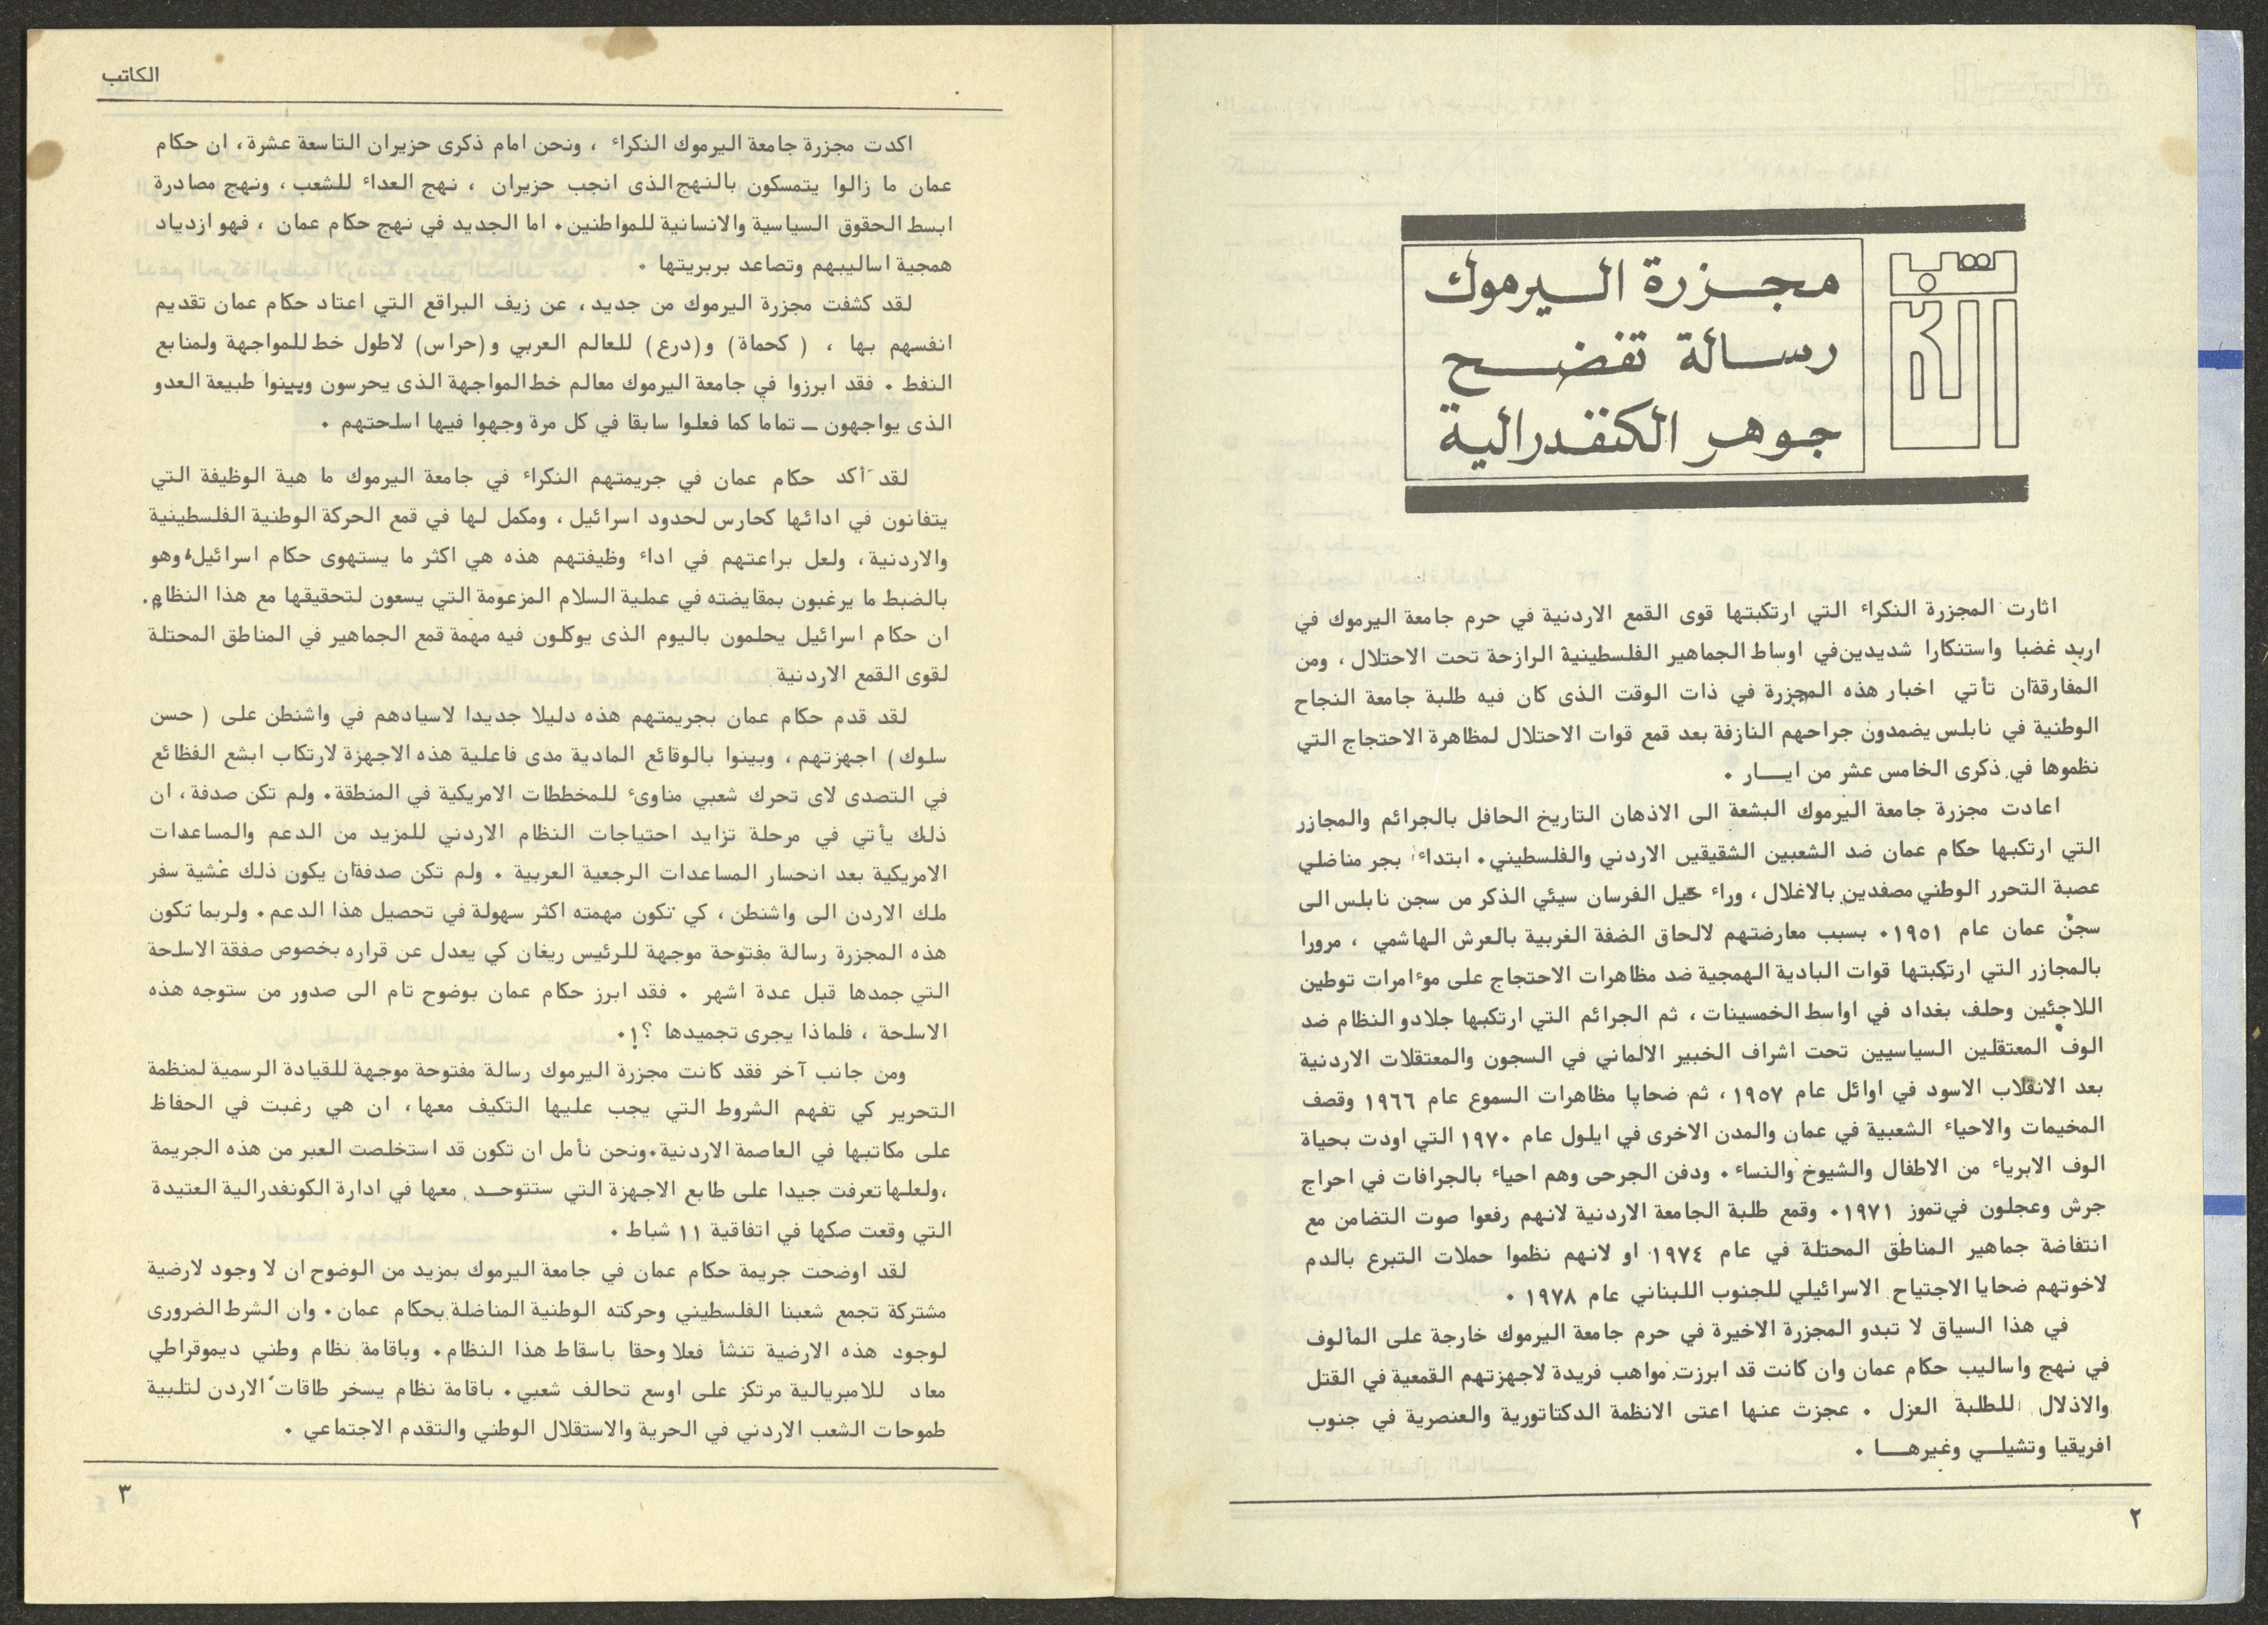 مجزرة اليرموك
رسالة تفضح
جوهر الكنفدرالية
اثارت المجزرة النكراء التي ارتكبتها قوى القمع الاردنية في حرم جامعة اليرموك في
اربد غضبا واستنكارا شديدين في اوساط الجماهير الفلسطينية الرازحة تحت الاحتلال ، ومن
المفارقة ان تأتي اخبار هذه المجزرة في ذات الوقت الذى كان فيه طلبة جامعة النجاح
الوطنية في نابلس يضمدون جراحهم النازفة بعد قمع قوات الاحتلال لمظاهرة الاحتجاج التي
نظموها في ذكرى الخامس عشر من ايـــار ٠
اعادت مجزرة جامعة اليرموك البشعة الى الاذهان التاريخ الحافل بالجرائم والمجازر
التي ارتكبها حكام عمان ضد الشعبين الشقيقين الاردني والفلسطيني٠ ابتداء بجر مناضلي
عصبة التحرر الوطني مصفدين بالاغلال ، وراء خيل الفرسان سيئي الذكر من سجن نابلس الى
سجن عمان عام ١٩٥١ ٠ بسبب معارضتهم لالحاق الضفة الغربية بالعرش الهاشمي ، مرورا
بالمجازر التي ارتكبتها قوات البادية الهمجية ضد مظاهرات الاحتجاج على موءامرات توطين
اللاجئين وحلف بغداد في اواسط الخمسينات ، ثم الجرائم التي ارتكبها جلادو النظام ضد
الوف المعتقلين السياسيين تحت اشراف الخبير الالماني في السجون والمعتقلات الاردنية
بعد الانقلاب الاسود في اوائل عام ١٩٥٧ ، ثم ضحايا مظاهرات السموع عام ١٩٦٦ وقصف
المخيمات والاحياء الشعبية في عمان والمدن الاخرى في ايلول عام ١٩٧٠ التي اودت بحياة
الوف الابرياء من الاطفال والشيوخ والنساء ٠ ودفن الجرحى وهم احياء بالجرافات في احراج
جرش وعجلون في تموز ١٩٧١ ٠ وقمع طلبة الجامعة الاردنية لانهم رفعوا صوت التضامن مع
انتفاضة جماهير المناطق المحتلة في عام ١٩٧٤ او لانهم نظموا حملات التبرع بالدم
لاخوتهم ضحايا الاجتياح الاسرائيلي للجنوب اللبناني عام ١٩٧٨ ٠
في هذا السياق لا تبدو المجزرة الاخيرة في حرم جامعة اليرموك خارجة على المألوف
في نهج واساليب حكام عمان وان كانت قد ابرزت مواهب فريدة لاجهزتهم القمعية في القتل
والاذلال للطلبة العزل ٠ عجزت عنها اعتى الانظمة الدكتاتورية والعنصرية في جنوب
افريقيا وتشيلـي وغيرهـــا ٠
٢
الكاتب
اكدت مجزرة جامعة اليرموك النكراء ، ونحن امام ذكرى حزيران التاسعة عشرة ، ان حكام
عمان ما زالوا يتمسكون بالنهج الذى انجب حزيران ، نهج العداء للشعب ، ونهج مصادرة
ابسط الحقوق السياسية والانسانية للمواطنين٠ اما الجديد في نهج حكام عمان ، فهو ازدياد
همجية اساليبهم وتصاعد بربريتها ٠
لقد كشفت مجزرة اليرموك من جديد ، عن زيف البراقع التي اعتاد حكام عمان تقديم
انفسهم بها ، ( كحماة) و(درع) للعالم العربي و(حراس) لاطول خط للمواجهة ولمنابع
النفط ٠ فقد ابرزوا في جامعة اليرموك معالم خط المواجهة الذى يحرسون وبينوا طبيعة العدو
الذى يواجهون ــ تماما كما فعلوا سابقا في كل مرة وجهوا فيها اسلحتهم ٠
لقد أكد حكام عمان في جريمتهم النكراء في جامعة اليرموك ما هية الوظيفة التي
يتفانون في ادائها كحارس لحدود اسرائيل ، ومكمل لها في قمع الحركة الوطنية الفلسطينية
والاردنية ، ولعل براعتهم في اداء وظيفتهم هذه هي اكثر ما يستهوى حكام اسرائيل، وهو
بالضبط ما يرغبون بمقايضته في عملية السلام المزعومة التي يسعون لتحقيقها مع هذا النظام.
ان حكام اسرائيل يحلمون باليوم الذى يوكلون فيه مهمة قمع الجماهير في المناطق المحتلة
لقوى القمع الاردنية
لقد قدم حكام عمان بجريمتهم هذه دليلا جديدا لاسيادهم في واشنطن على ( حسن
سلوك) اجهزتهم ، وبينوا بالوقائع المادية مدى فاعلية هذه الاجهزة لارتكاب ابشع الفظائع
في التصدى لاى تحرك شعبي مناوىء للمخططات الامريكية في المنطقة٠ ولم تكن صدفة ، ان
ذلك يأتي في مرحلة تزايد احتياجات النظام الاردني للمزيد من الدعم والمساعدات
الامريكية بعد انحسار المساعدات الرجعية العربية ٠ ولم تكن صدفة ان يكون ذلك عشية سفر
ملك الاردن الى واشنطن ، كي تكون مهمته اكثر سهولة في تحصيل هذا الدعم٠ ولربما تكون
هذه المجزرة رسالة مفتوحة موجهة للرئيس ريغان كي يعدل عن قراره بخصوص صفقة الاسلحة
التي جمدها قبل عدة اشهر ٠ فقد ابرز حكام عمان بوضوح تام الى صدور من ستوجه هذه
الاسلحة ، فلماذا يجرى تجميدها ؟! ٠
ومن جانب آخر فقد كانت مجزرة اليرموك رسالة مفتوحة موجهة للقيادة الرسمية لمنظمة
التحرير كي تفهم الشروط التي يجب عليها التكيف معها ، ان هي رغبت في الحفاظ
على مكاتبها في العاصمة الاردنية٠ونحن نأمل ان تكون قد استخلصت العبر من هذه الجريمة
،ولعلها تعرفت جيدا على طابع الاجهزة التي ستتوحـد معها في ادارة الكونفدرالية العتيدة
التي وقعت صكها في اتفاقية ١١ شباط ٠
لقد اوضحت جريمة حكام عمان في جامعة اليرموك بمزيد من الوضوح ان لا وجود لارضية
مشتركة تجمع شعبنا الفلسطيني وحركته الوطنية المناضلة بحكام عمان٠ وان الشرط الضرورى
لوجود هذه الارضية تنشأ فعلا وحقا باسقاط هذا النظام٠ وباقامة نظام وطني ديموقراطي
معاد للامبريالية مرتكز على اوسع تحالف شعبي٠ باقامة نظام يسخر طاقات الاردن لتلبية
طموحات الشعب الاردني في الحرية والاستقلال الوطني والتقدم الاجتماعي ٠
٣